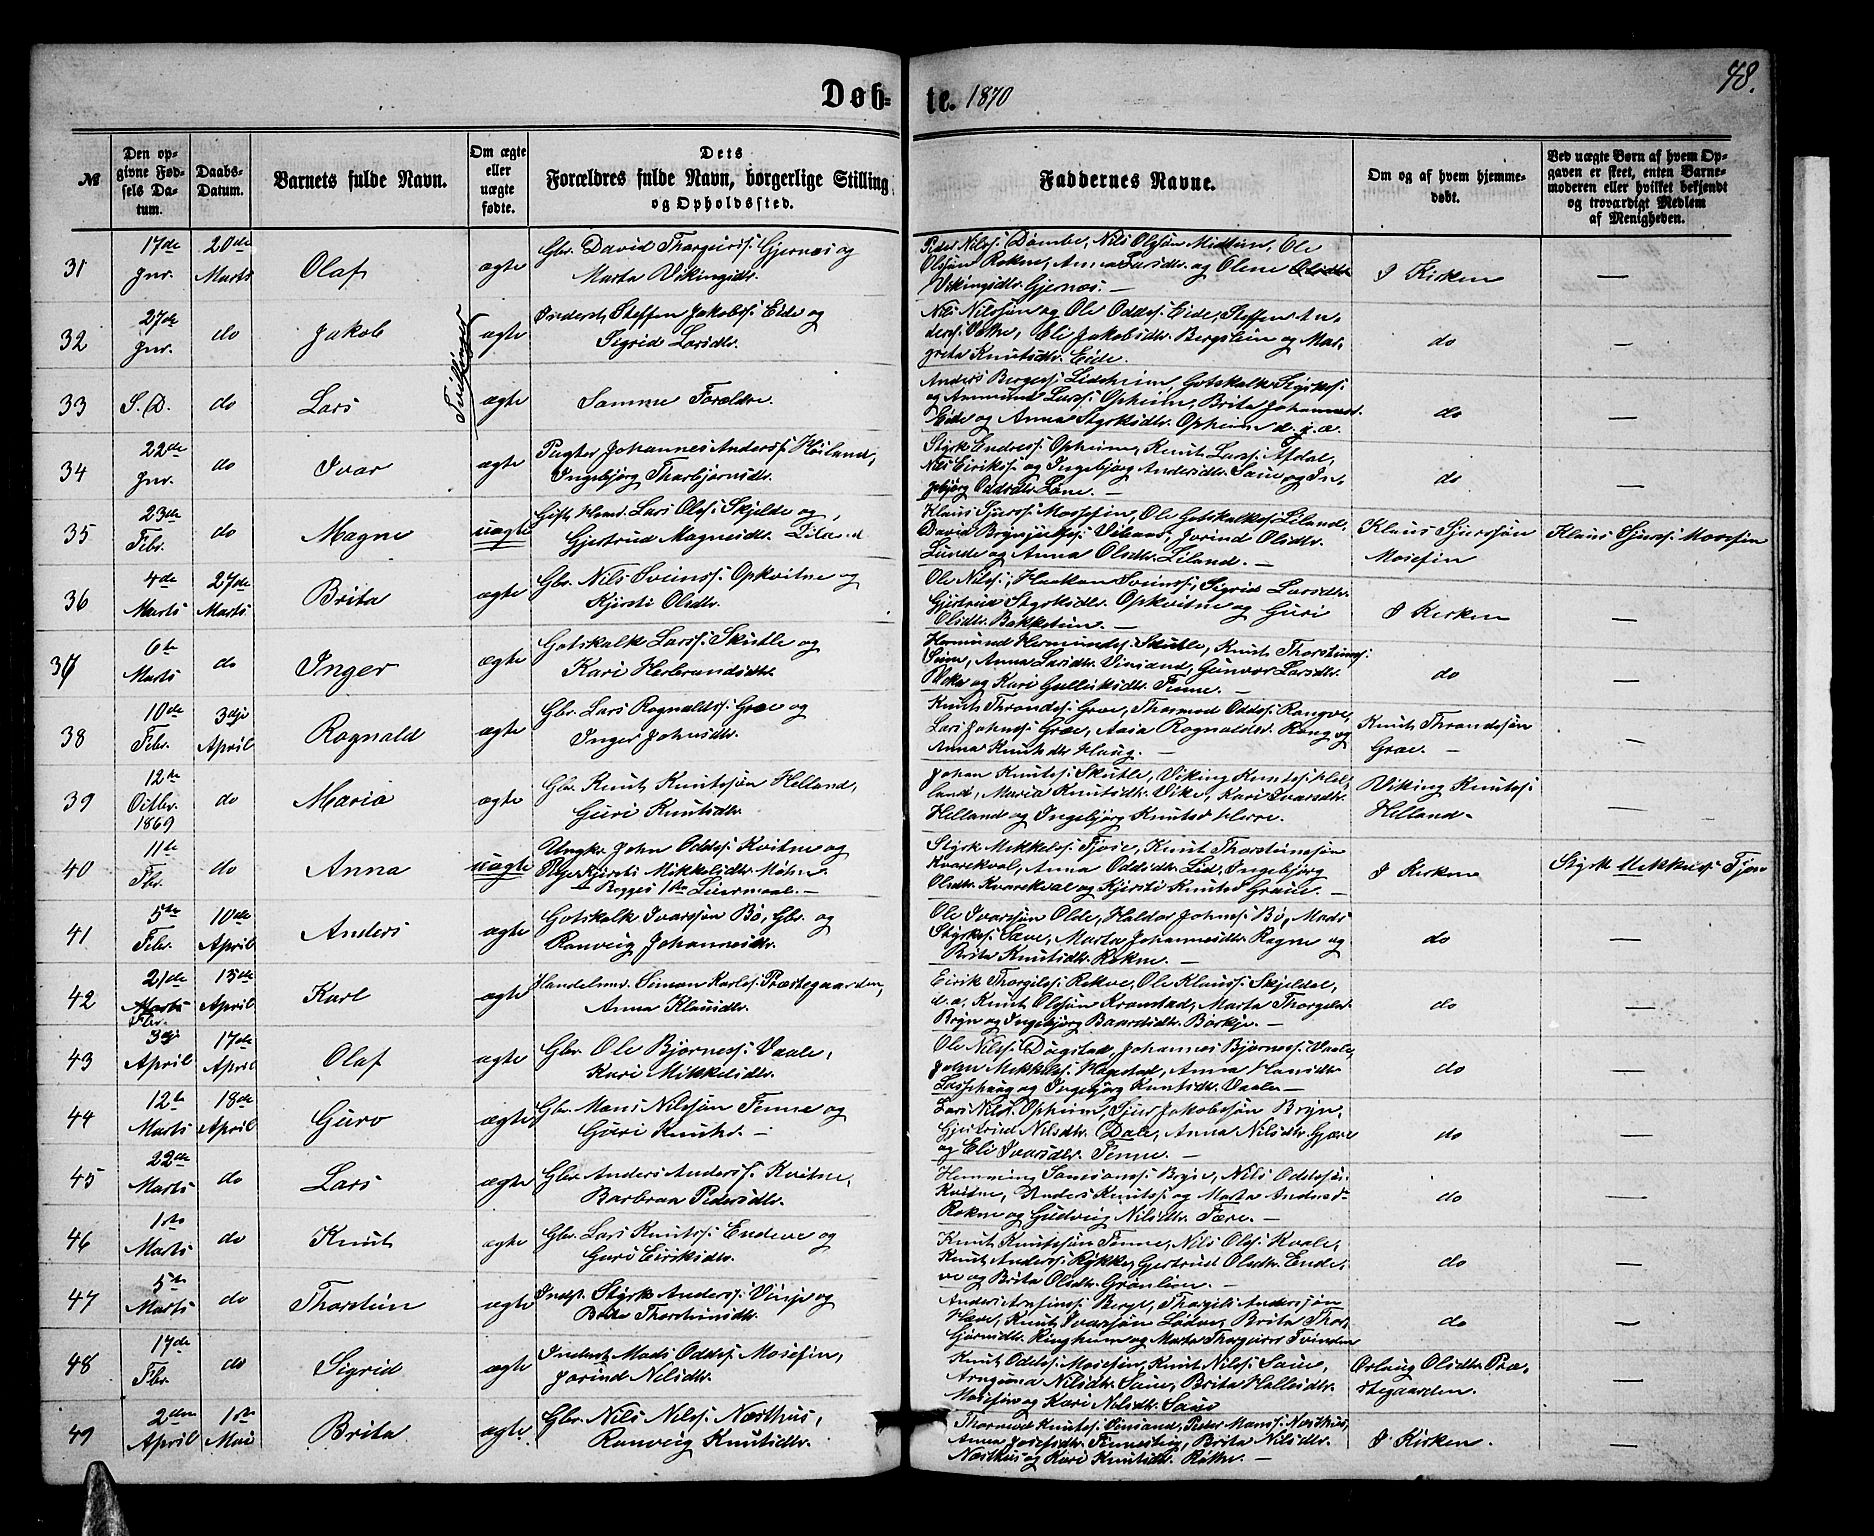 Døb-
te. 1870
48.
№
Den op-
givne Fød-
sels Da-
tum.
Daabs-
Datum.
Barnets fulde Navn.
Om ægte
eller
uægte
fødte.
Dets
Forældres fulde Navn, borgerlige Stilling
og Opholdssted.
Faddernes Navne.
Om og af hvem hjemme-
døbt.
Ved uægte Børn af hvem Op-
gaven er skeet, enten Barne-
moderen eller hvilket bekjendt
og troværdigt Medlem
af Menigheden.
31
17de
Jnr.
20de
Marts
Olaf
ægte
Gbr. David Thorgeirss: Gjernæs og
Marta Vikingsdtr.
Peder Nilss: Dømbe, Nils Olssøn Midtun, Ole
Olssøn Rokne, Anna Larsdtr. og Olene
Vikingsdtr. Gjernæs. —
I Kirken
—
Tvillinger
32
27de
Jnr.
do
Jakob
ægte
Inderst, Steffen Jakobss: Eide og
Sigrid Larsdtr.
Nils Nilssøn og Ole Oddss: Eide, Steffen An-
derss: , Eli Jakobsdtr. Bergslein og Mar-
greta Knutsdtr. Eide.
do
—
33
S. D.
do
Lars
ægte
Samme Forældre
Anders Bergess: Lidsheim, Gotskalk Styrkss:
og Ammund Larss: Opheim, Brita Johannesd.
Eide og Anna Styrksdtr. Opheim d. y. æ.
do
—
34
22de
Jnr.
do
Ivar
ægte
Pagter Johannes Anderss: Høiland,
Ingebjørg Thorbjørnsdtr.
Styrk Endress: Opheim, Knut Larss: Afdal,
Nils Eirikss: og Ingebjørg Andersdtr. Saue og In-
gebjørg Oddsdtr. Lone. —
do
—
35
23de
Febr.
do
Magne
uægte
Gift Mand Lars Olss: Skjelde og
Gjertrud Magnesdtr. Liland
Klaus Sjurss: Mosefin, Ole Gotskalkss: Liland,
David Brynjulfss: , Jorind Olsdtr.
Lunde og Anna Olsdtr. Liland. —
Klaus Sjurssøn
Mosefin
Klaus Sjurss: Mosefin
36
4de
Marts
27de
Marts
Brita
ægte
Gbr. Nils Sveinss: Opkvitne og
Kjersti Olsdtr.
Ole Nilss:, Haakon Sveinss:, Sigrid Larsdtr.
Gjertrud Styrksdtr. Opkvitne og Guri
Olsdtr. Bakketun. —
I Kirken
—
37
6te
Marts
do
Inger
ægte
Gotskalk Larss: Skutle og
Kari Herbrandsdtr.
Hermund Hermundss: Skutle, Knut Thorsteinss:
, Anna Larsdtr. Vinsand, Gunvor Larsdtr.
og Kari Gulleiksdtr. Finne. —
do
—
38
10de
Febr.
3dje
April
Rognald
ægte
Gbr. Lars Rognaldss: Græe og
Inger Johnsdtr.
Knut Throndss: Græe, Thormod Oddss: Rongve,
Lars Johnss: Græe, Aasa Rognaldsdr. Rong og
Anna Knutsdtr. Haug. —
Knut Throndssøn
Græe. —
—
39
12te
Octbr.
1869
do
Maria
ægte
Gbr. Knut Knutssøn Helland,
Guri Knutsdtr.
Johan Knutss: Skutle, Viking Knutss: Hel-
land, Maria Knutsdtr. Vike, Kari Ivarsdtr.
Helland og Ingebjørg Knutsd. Herre.
Viking Knutss:
Helland.
—
40
11te
Fbr.
do
Anna
uægte
Ungkr. John Oddss: Kvitne og
Pige Kjersti Mikkelsdtr. Møhn.
Begges 1ste Leiermaal. —
Styrk Mikkelss: Tjose, Knut Thorsteinssøn
Kvarekval, Anna Oddsdtr. Lid, Ingebjørg
Olsdtr. Kvarekval og Kjersti Knutsd. . —
I Kirken
Styrk Mikkelss: Tjose
41
5te
Febr.
10de
April
Anders
ægte
Gotskalk Ivarssøn Bø, Gbr. og
Ranveig Johannesdtr.
Ole Ivarssøn Olde, Haldor Johnss: Bø, Mads
Styrkss: Saue, Marta Johannesdtr. Rogne og
Brita Knutsdtr. Rokne. —
do
—
42
21de
Marts
Fbr.
15de
April
Karl
ægte
Handelsmd. Simon Karlss: Præstegaarden,
Anna Klausdtr.
Eirik Thorgilss: Rekve, Ole Klauss: Skjeldal,
d.æ, Knut Olssøn Kronstad, Marta Thorgilsd.
Bryn og Ingebjørg Baardsdtr. Børkje. —
do
—
43
3dje
April
17de
April
Olaf
ægte
Gbr. Ole Bjørness: Vaale,
Kari Mikkelsdtr.
Ole Nilss: Døgstad, Johannes Bjørness: Vaale,
John Mikkelss: Høgstad, Anna Hansdtr.
og Ingebjørg Knutsdtr. Vaale —
do
—
44
12te
Marts
18de
April
Guro
ægte
Gbr. Mons Nilssøn Finne og
Guri Knutsd. —
Lars Nilss. Opheim, Sjur Jakobssøn Bryn,
Gjertrud Nilsdtr. Dale, Anna Nilsdtr. Gjære
og Eli Ivarsdtr. Finne. —
do
—
45
22de
Marts
do
Lars
ægte
Gbr. Anders Anderss: Kvitne,
Barbraa Pedersdtr.
Hemming Samsonss: Bryn, Nils Oddssøn
Kvitne, Anders Knutss: og Marta Andersd.
Rokne og Gudveig Nilsdtr. Fære. —
do
—
46
1ste
Marts
do
Knut
ægte
Gbr. Lars Knutss: Endeve og
Guri Eiriksdtr.
Knut Knutssøn Finne, Nils Olss: Kvale,
Knut Anderss: Rykke, Gjertrud Olsdtr. Ende-
ve og Brita Olsdtr. Grønlien. —
do
—
47
5te
Marts
do
Thorstein
ægte
Indst. Styrk Anderss: Vinje og
Brita Thorsteinsdtr.
Anders Arnfinss: Berge, Thorgils Anderssøn
Hæve, Knut Ivarssøn Lødve, Brita Thor-
sdtr. Ringheim og Marta Thorgeirsd. Tvinden
do
—
48
17de
Fbr.
do
Sigrid
ægte
Inderst Mads Oddss: Mosefin,
Jorind Nilsdtr.
Knut Oddss: Mosefin, Knut Nilss: Saue,
Arnguna Nilsdtr. Saue, Brita Hallesdtr.
Mosefin og Kari Nilsdtr. Saue
Orlaug Olsdtr. Præ-
stegaarden.
—
49
2den
April
1ste
Mai
Brita
ægte
Gbr. Nils Nilss: Næsthus,
Ranveig Knutsdtr.
Thormod Knutss: Vinsand, Peder Monss: Næsthus,
Anna Josefsdtr. , Brita Nilsdtr.
Næsthus og Kari Knutsdtr. Røthe. —
I Kirken.
—